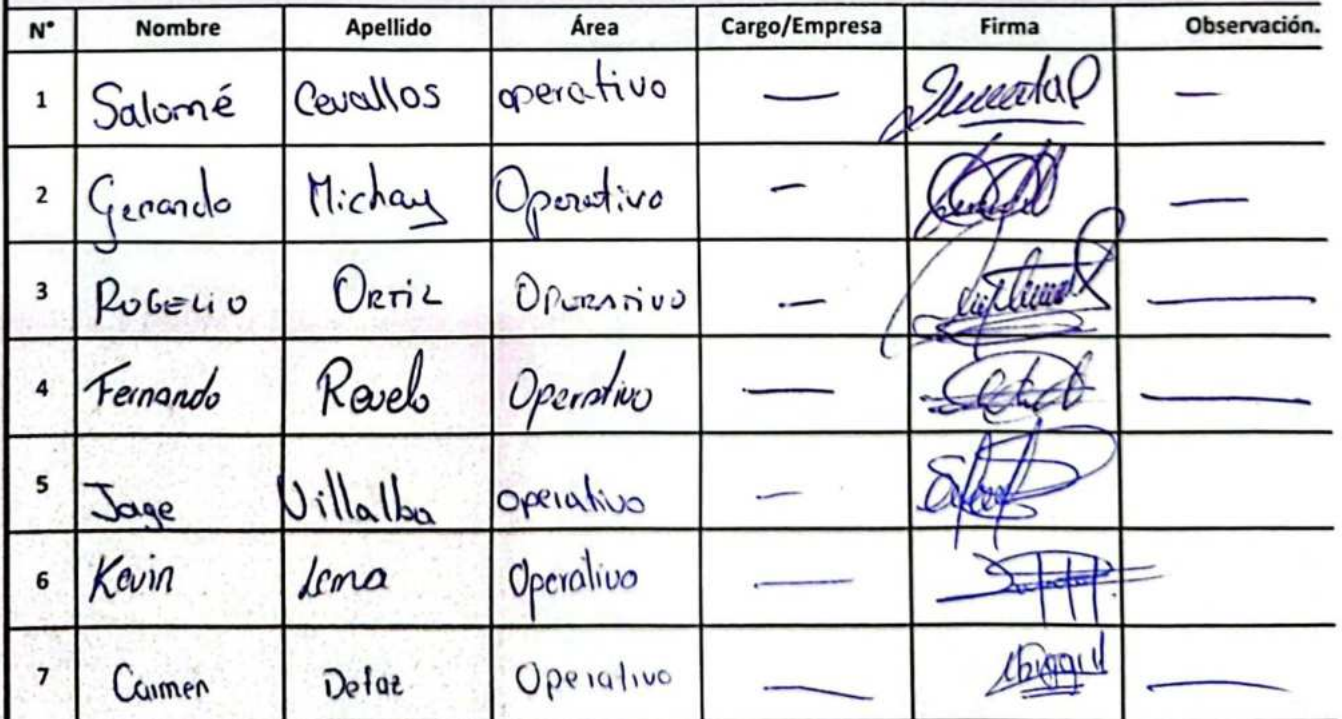 N° Nombre Apellido Área Cargo/Empresa Firma Observación.
1 Salomé Cevallos operativo — —
2 Gerardo Michay Operativo — —
3 ROGELIO ORTIZ OPERATIVO — —
4 Fernando Revelo Operativo — —
5 Jorge Villalba operativo —
6 Kevin Lema Operativo —
7 Carmen Operativo — —